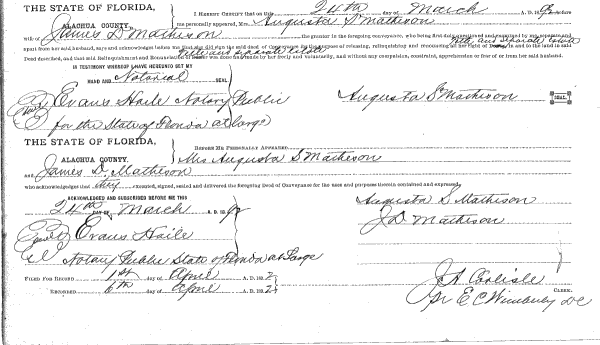 THE STATE OF FLORIDA,
ALACHUA COUNTY.
I HEREBY CERTIFY that on this 24th day of March A. D. 189 2 before
me personally appeared, Mrs Augusta S Matheson
wife of James D Matheson the grantor in the foregoing conveyance, who being first duly
apart from her said husband, says and acknowledges before me that she did sign the said deed of Conveyance for the purpose of releasing, relinquishing and renouncing all her right of Dower in and to the land in said
Deed described, and that said Relinquishment and Renunciation of Dower was done and made by her freely and voluntarily, and without any compulsion, constraint, apprehension or fear of or from her said husband.
IN TESTIMONY WHEREOF I HAVE HEREUNTO SET MY
HAND AND Notarial SEAL
Evans Haile Notary Public
for the State of Florida at Large
Augusta S Matheson SEAL
THE STATE OF FLORIDA,
ALACHUA COUNTY.
BEFORE ME PERSONALLY APPEARED
Mrs Augusta S Matheson
and James D. Matheson
who acknowledges that they executed, signed, sealed and delivered the foregoing Deed of Conveyance for the uses and purposes therein contained and expressed.
ACKNOWLEDGED AND SUBSCRIBED BEFORE ME THIS
24th DAY OF March A. D. 189 2
Augusta S. Matheson
J D Matheson
Evans Haile
Notary Public State of Florida at Large
FILED FOR RECORD 1st day of April A. D. 189 2
RECORDED 6th day of April A. D. 189 2
J A Carlisle
CLERK.
Pr E C Wimberly DC